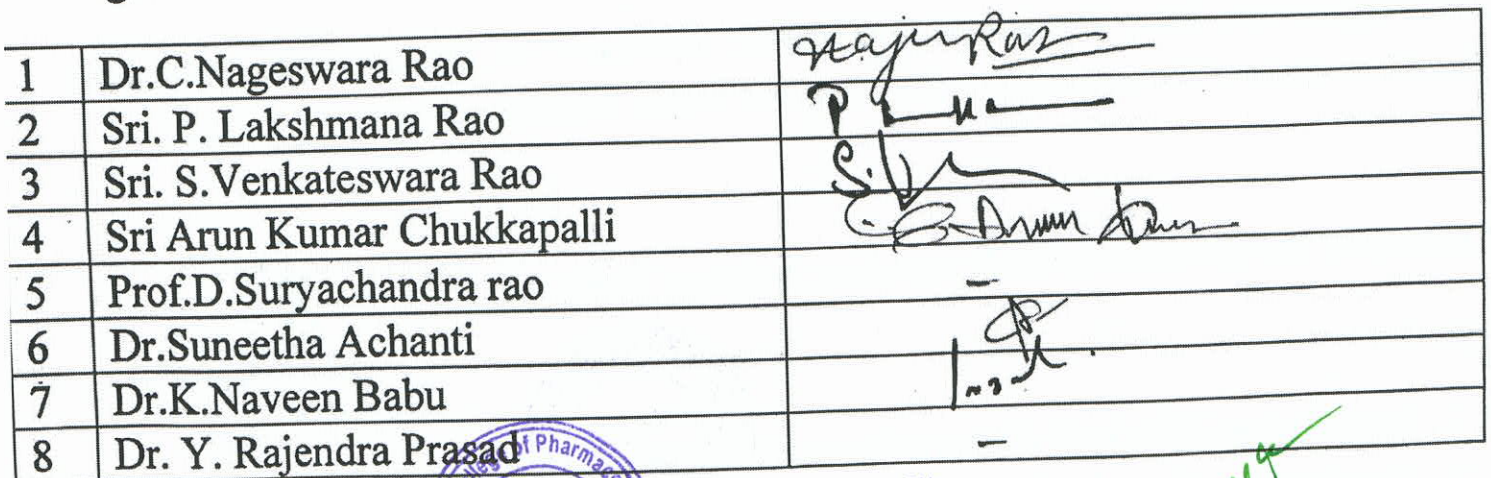 1 Dr.C.Nageswara Rao
2 Sri. P. Lakshmana Rao
3 Sri. S.Venkateswara Rao
4 Sri Arun Kumar Chukkapalli
5 Prof.D.Suryachandra rao -
6 Dr.Suneetha Achanti
7 Dr.K.Naveen Babu
8 Dr. Y. Rajendra Prasad -
of Pharmac